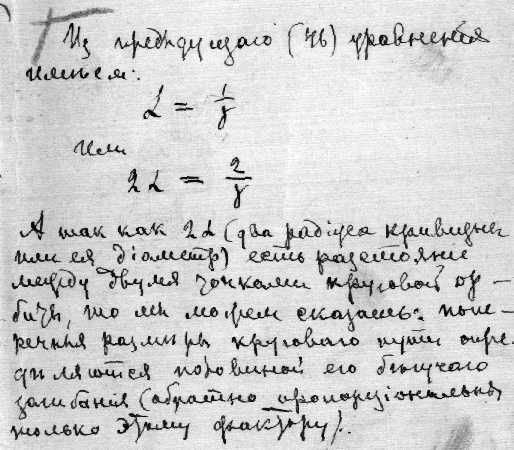 Из предыдущаго (46) уравненія
имѣемъ:
L = 1/γ
или
2L = 2/γ
А такъ как 2L (два радіуса кривизны
или ея діаметр) есть разстояніе
между двумя точками круговой ор-
биты, то мы можем сказать: попе-
речныя размѣры кругового пути опре-
дѣляются половиной его
загибанія (обратно пропорціональны
только этому фактору).